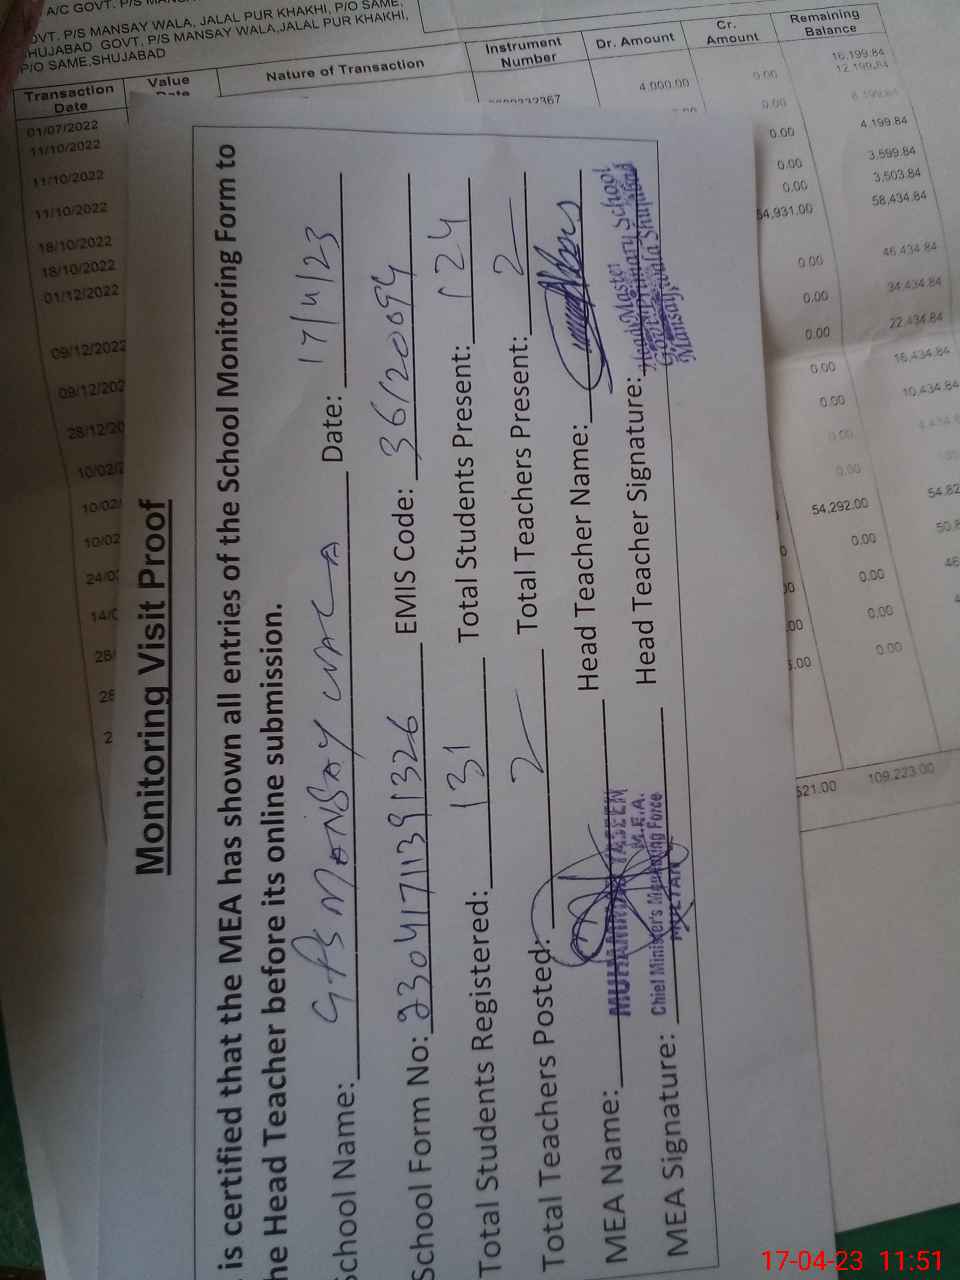 A/C GOVT. P/S
OVT. P/S MANSAY WALA, JALAL PUR KHAKHI, P/O SAME,
SHUJABAD GOVT. P/S MANSAY WALA,JALAL PUR KHAKHI,
P/O SAME,SHUJABAD
Transaction Date Value Date Nature of Transaction Instrument Number Dr. Amount Cr. Amount Remaining Balance
01/07/2022 4,000.00 0.00 16,199.84
11/10/2022 0.00 12,199.84
11/10/2022 0.00 4,199.84
11/10/2022 0.00 3,599.84
18/10/2022 0.00 3,503.84
18/10/2022 54,931.00 58,434.84
01/12/2022 0.00 46,434.84
09/12/2022 0.00 34,434.84
09/12/202 0.00 22,434.84
28/12/20 0.00 16,434.84
10/02/2 0.00 10,434.84
10/02/ 0.00
10/02 0.00
24/0 54,292.00 54,82
14/0 0.00 50,8
28/ 0.00 46
28 0.00 4
2 0.00
521.00 109,223.00
Monitoring Visit Proof
is certified that the MEA has shown all entries of the School Monitoring Form to
he Head Teacher before its online submission.
School Name: GPS MANSAY WALA Date: 17/4/23
School Form No: 23041711391326 EMIS Code: 36120094
Total Students Registered: 131 Total Students Present: 124
Total Teachers Posted: 2 Total Teachers Present: 2
MEA Name: MUHAMMAD YASEEN Head Teacher Name:
M.E.A.
Chief Minister's Monitoring Force
MULTAN
MEA Signature: Head Teacher Signature:
Head Master
Govt. Primary School
Mansay wala Shujabad
17-04-23 11:51